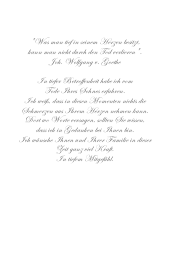 "Was man tief in seinem Herzen besitzt,
kann man nicht durch den Tod verlieren."
Joh. Wolfgang v. Goethe
In tiefer Betroffenheit habe ich vom
Tode Ihres Sohnes erfahren.
Ich weiß, dass in diesen Momenten nichts die
Schmerzen aus Ihrem Herzen nehmen kann.
Dort wo Worte versagen, sollten Sie wissen,
dass ich in Gedanken bei Ihnen bin.
Ich wünsche Ihnen und Ihrer Familie in dieser
Zeit ganz viel Kraft.
In tiefem Mitgefühl.